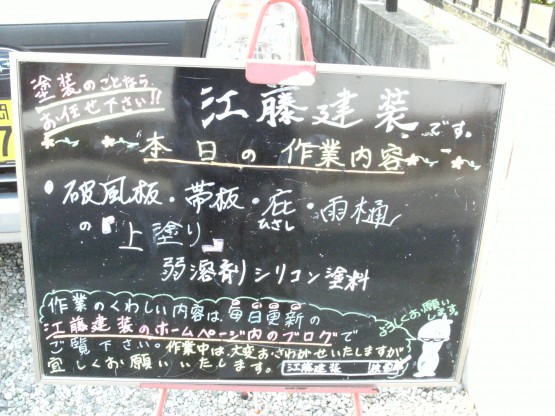 塗装のことなら
お任せ下さい!!
江藤建装です。
本日の作業内容
・破風板・帯板・庇・雨樋
ひさし
の「上塗り」
弱溶剤シリコン塗料
作業のくわしい内容は、毎日更新の
江藤建装のホームページ内のブログで
ご覧下さい。作業中は、大変おさわがせいたしますが
宜しくお願いいたします。
江藤建装
よろしくお願いします。
7